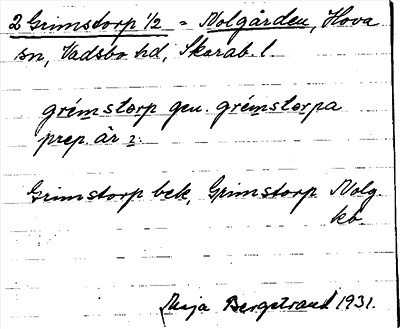 2 Grimstorp 1/2 = Nolgården, Hova
sn, Vadsbo hd, Skarab. l.
grémstorp gen. grémstorpa
prep. är 2.
Grimstorp bek, Grimstorp Nolg.
kb.
Maja Bergstrand 1931.